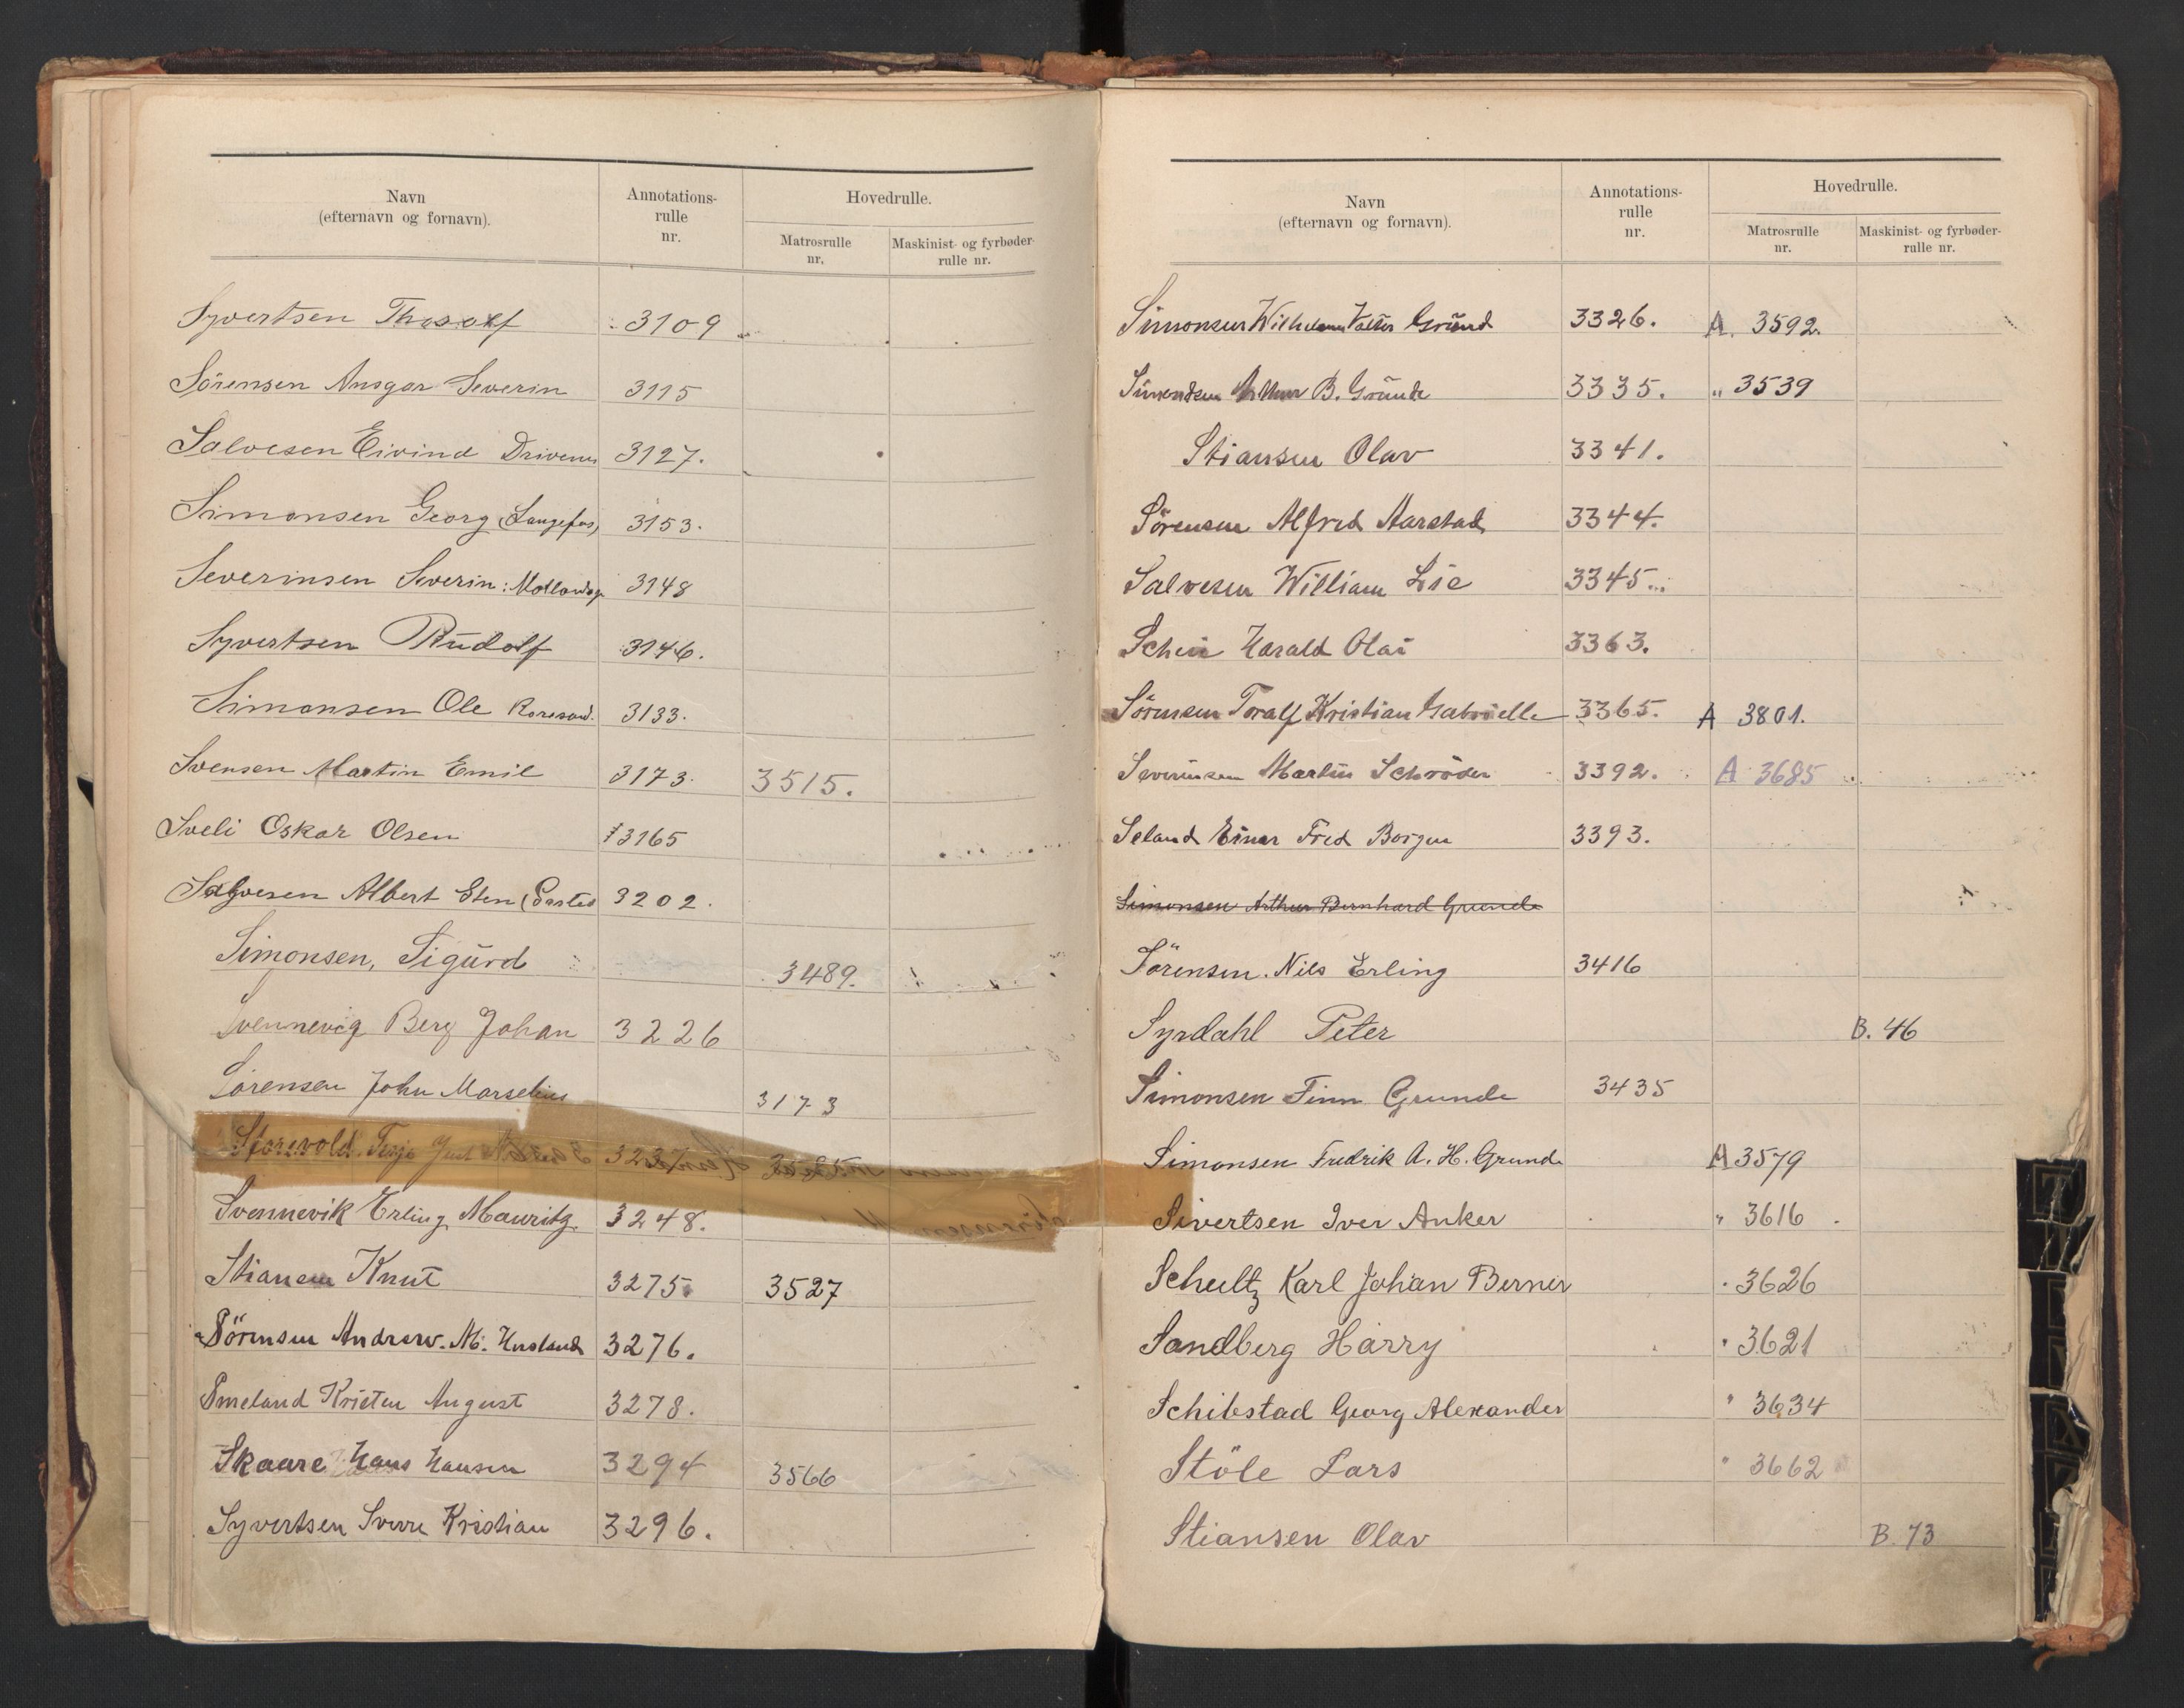 Navn
(efternavn og fornavn).
Annotations-
rulle
nr.
Hovedrulle.
Matrosrulle
nr.
Maskinist- og fyrbøder-
rulle nr.
Syvertsen 3109
Sörensen Ansgar Severin 3115
Salvesen Eivind 3127.
Simonsen Georg (Langefos) 3153.
Severinsen Severin: 3148
Syvertsen Rudolf 3146.
Simonsen Ole 3133.
Svensen Martin Emil 3173. 3515.
Sveli Oskar Olsen 3165
Salvesen Albert Sten 3202.
Simonsen, Sigurd 3489.
Svennevig Berg Johan 3226
Sörensen John Marselius 3173
Storevold. Terje
Svennevik Erling Mauritz. 3248.
Stiansen Knut 3275 3527
Sörensen Andrew. M. 3276.
Smeland Kristen August 3278.
Skaare Hans Hansen 3294 3566
Syvertsen Sverre Kristian 3296.
Navn
(efternavn og fornavn).
Annotations-
rulle
nr.
Hovedrulle.
Matrosrulle
nr.
Maskinist- og fyrbøder-
rulle nr.
Simonsen Wilhelm Grund 3326. A. 3592.
Simonsen Arthur B. Grunde 3335. " 3539
Stiansen Olav 3341.
Sörensen Alfred Aarstad 3344.
Salvesen William Lie 3345.
Schei Harald Olai 3363.
Sörensen Toralf Kristian Gabrielle 3365. A 3801.
Severinsen Martin Schröder 3392. A 3685
Seland Einar Fred Borgen 3393.
Simonsen Arthur Bernhard Grunde
Sörensen. Nils Erling 3416
Syrdahl Peter B. 46
Simonsen Finn Grunde 3435
Simonsen Fredrik A. H. Grunde A 3579
Sivertsen Iver Anker " 3616
Schultz Karl Johan Berner " 3626
Sandberg Harry " 3621
Schibstad Georg Alexander " 3634
Stöle Lars " 3662
Stiansen Olav B. 73